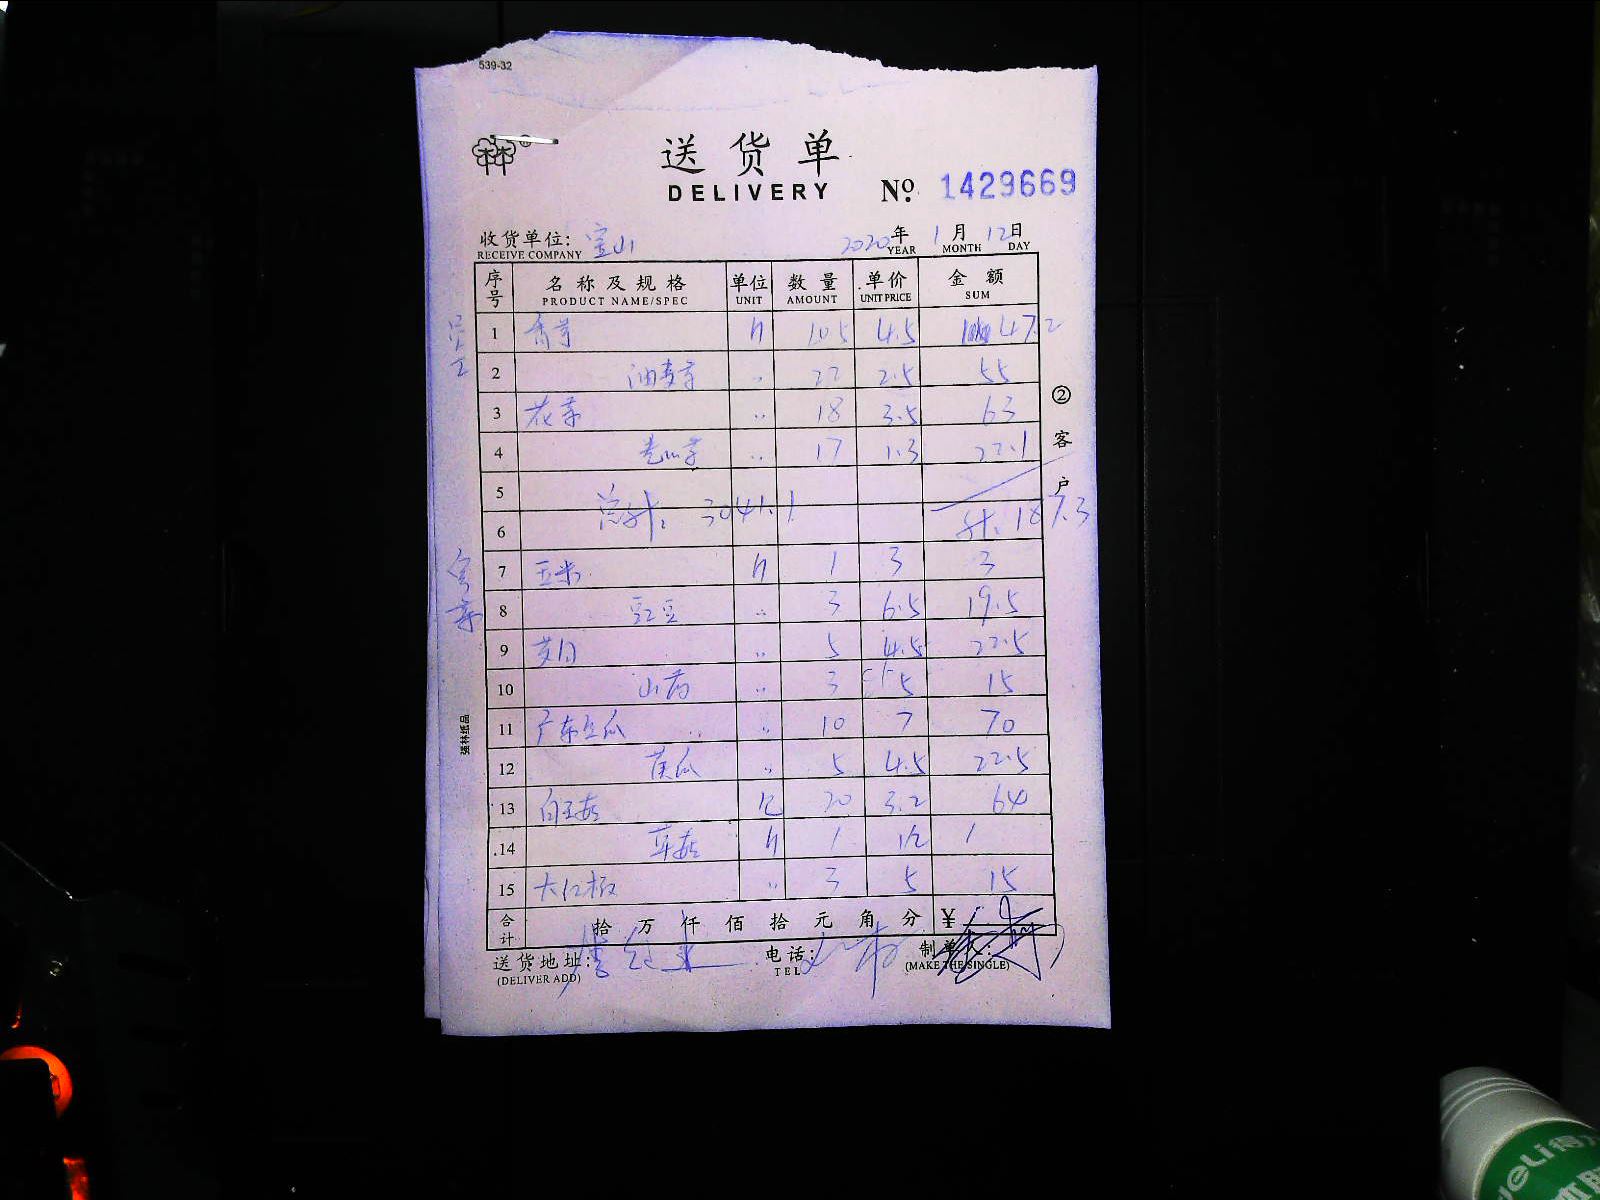 539-32
送货单
DELIVERY
No. 1429669
收货单位: 宝山
RECEIVE COMPANY
2020年 1月 12日
YEAR MONTH DAY
序号 名称及规格 单位 数量 单价 金额
PRODUCT NAME/SPEC UNIT AMOUNT UNIT PRICE SUM
员工
1 斤 10.5 4.5 47.2
2 油麦菜 〃 22 2.5 55
3 花菜 〃 18 3.5 63
4 〃 17 1.3 22.1
5
6 总计: 3041.1 计: 187.3
7 玉米 斤 1 3 3
8 豇豆 〃 3 6.5 19.5
9 〃 5 4.5 22.5
10 山药 〃 3 5 15
11 广东丝瓜 〃 10 7 70
12 黄瓜 〃 5 4.5 22.5
13 白玉菇 包 20 3.2 64
14 草菇 斤 1 12 1
15 大红椒 〃 3 5 15
合计 拾 万 仟 佰 拾 元 角 分 ¥
送货地址:
(DELIVER ADD)
电话:
TEL
制单人:
(MAKE THE SINGLE)
②客户
强林纸品
deli 得力